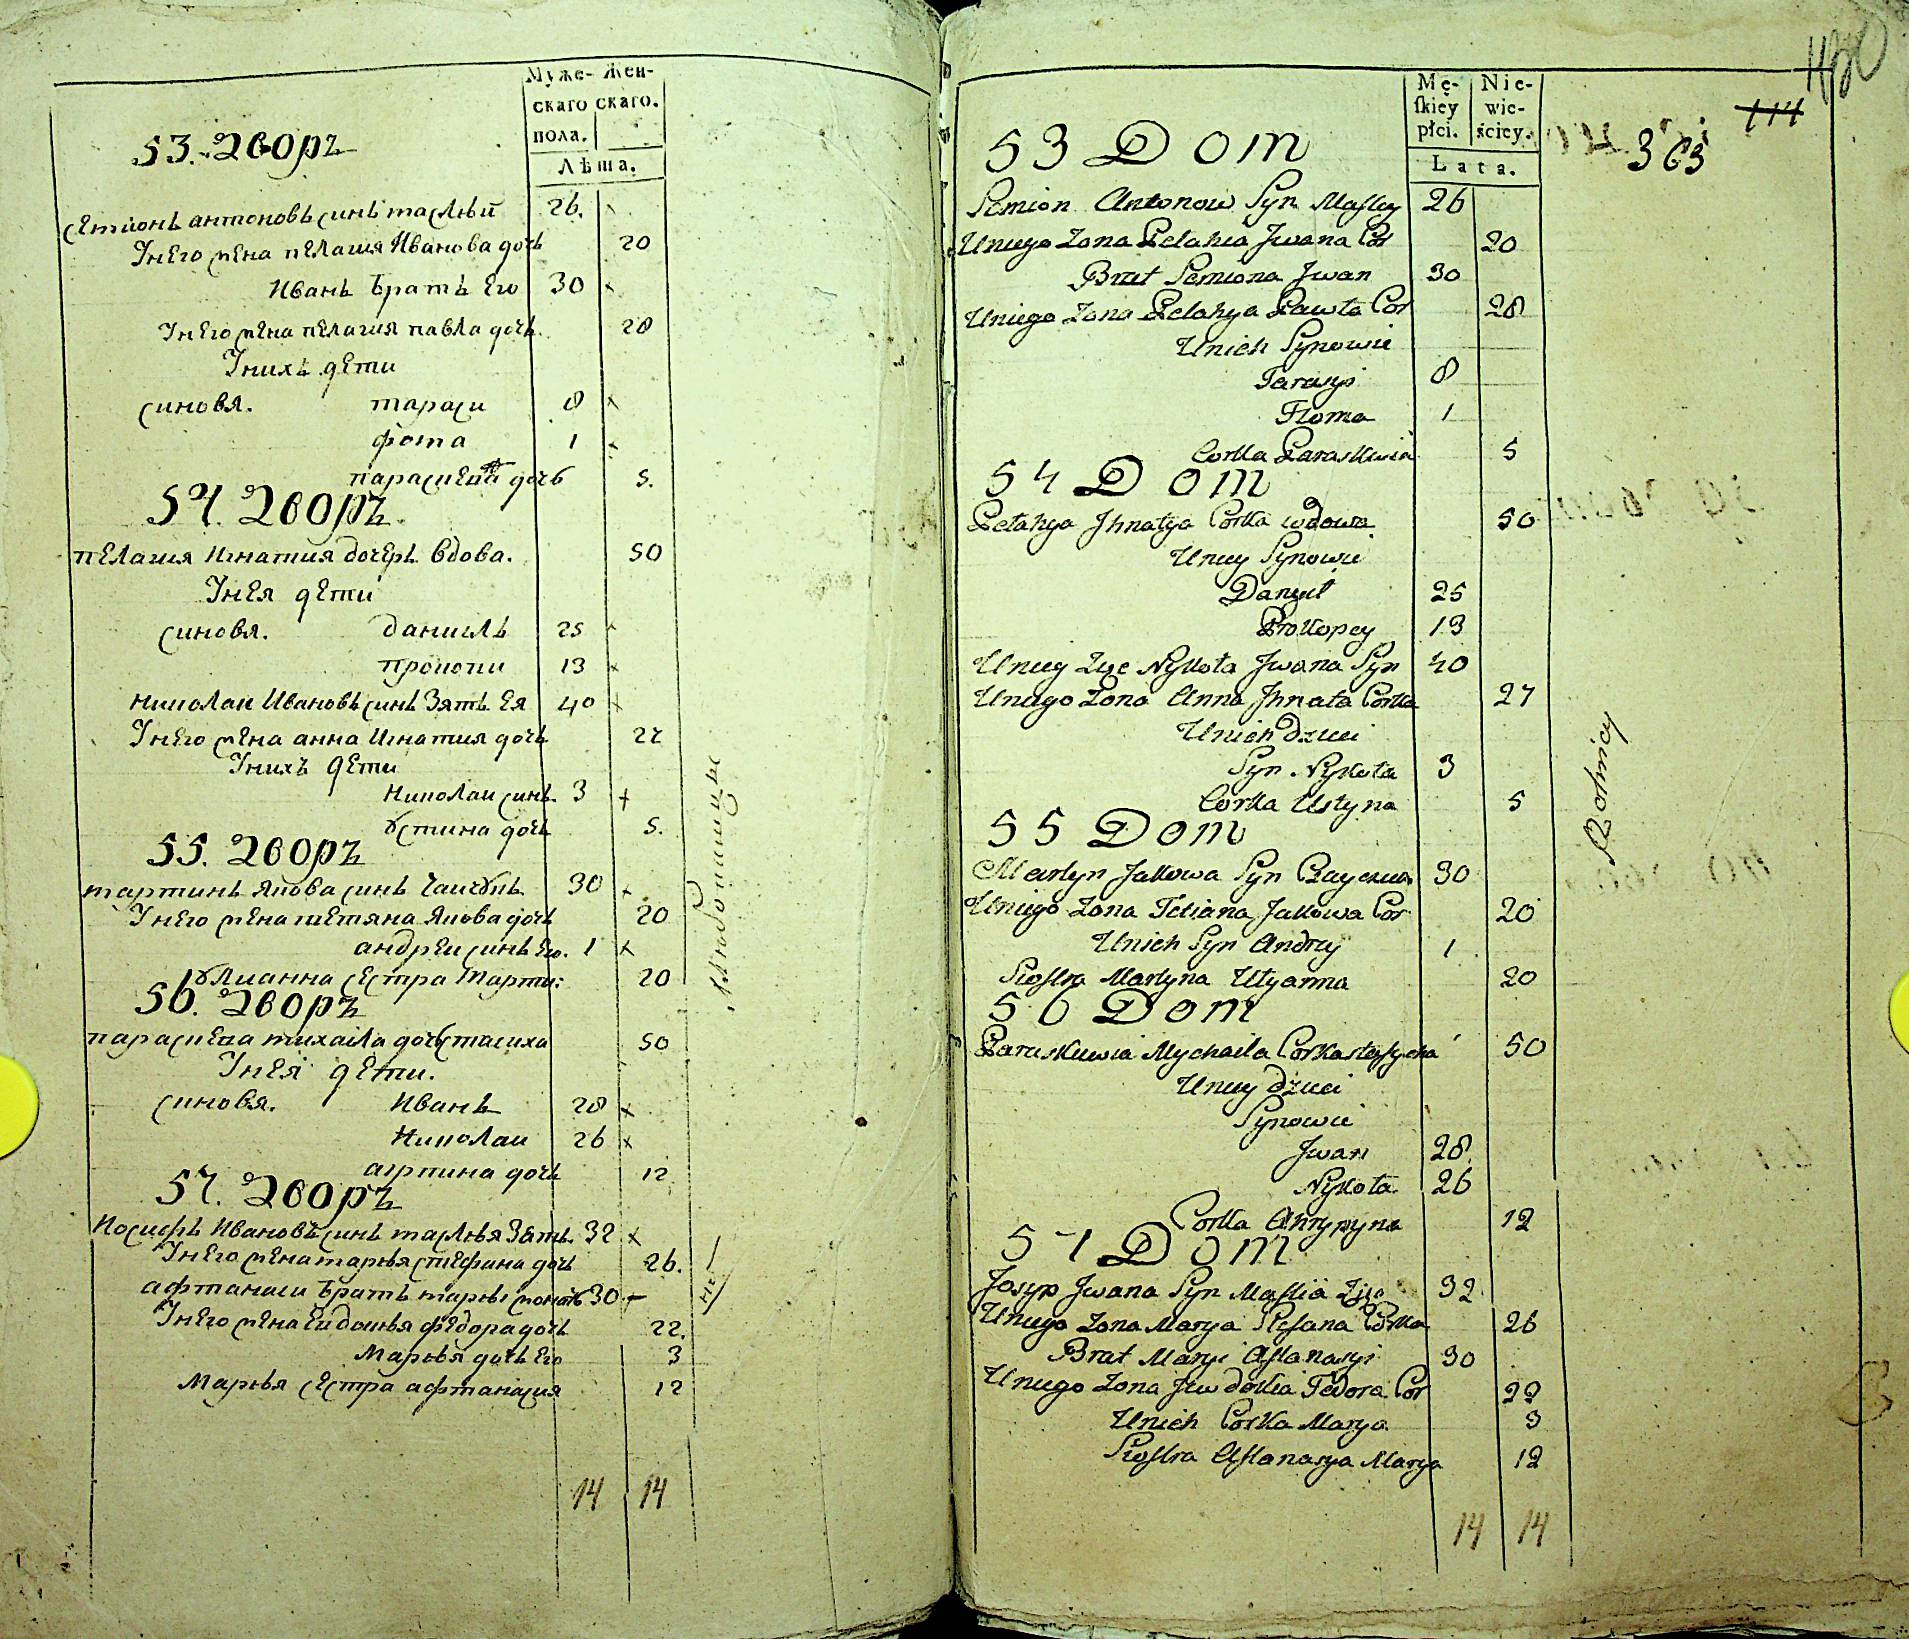 Муже- Жен-
скаго скаго.
пола.
Лѣта.
53. Дворъ
Семионъ антоновъ синъ маслѣй 26.
Унего жена пелагия Иванова дочь 20
Иванъ братъ Его 30
Унего жена пелагия павла дочь. 28
Унихъ дети
синовя. тараси 8
фома 1
параскева дочь 5.
54. Дворъ
пелагия Игнатия дочеръ вдова. 50
Унея дети
синовя. данилъ 25
прокопи 13
николаи Ивановъ синъ Зять Ея 40
Унего жена анна Игнатия дочь 27
Унихъ дети
Николаи синъ. 3
устина дочь 5.
55. Дворъ
мартинъ Якова синъ 30
Унего жена тетяна Якова дочь 20
андреи синъ Его. 1
улианна сестра марти: 20
56. Дворъ
параскева михаила дочь стасиха 50
Унея дети.
синовя. Иванъ 28
Николаи 26
агрпина дочь 12
57. Дворъ
Иосифъ Ивановъ синъ маслѣя Зять. 32
Унего жена марья стефана дочь 26.
афтанаси братъ марьи 30
Унего жена Евдокья федора дочь 22.
Марья дочь Его 3
Марья сестра афтанасия 12
14 14
Mę- Nie-
skiey wie-
płci. ściey.
Lata.
180
114
363
53 Dom
Semion Antonow Syn Masley 26
Uniego Zona Pelahia Jwana Cor 20
Brat Semiona Jwan 30
Uniego Zona Pelahya Pawła Cor 28
Unich Synowie
Tarasyi 8
Floma 1
Corka Paraskiewia 5
54 Dom
Pelahya Jhnatya Corka wdowa 50
Uniey Synowie
Danyił 25
Prokopey 13
Uniey Zięc Nykoła Jwana Syn 40
Uniego Zona Anna Jhnata Corka 27
Unich dzieci
Syn Nykoła 3
Corka Ustyna 5
55 Dom
Martyn Jakowa Syn 30
Uniego Zona Tetiana Jakowa Cor 20
Unich Syn Andrzy 1
Siostra Martyna Ulyanna 20
56 Dom
Paraskiewia Mychaila Corka stasycha 50
Uniey dzieci
Synowie
Jwan 28
Nykoła 26
Corka Ahrypyna 12
57 Dom
Josyp Jwana Syn Maslia Zięc 32
Uniego Zona Marya Stefana Corka 26
Brat Maryi Aftanasyi 30
Uniego Zona Jewdokia Fedora Cor 22
Unich Corka Marya 3
Siostra Aftanasya Marya 12
14 14
Rolnicy